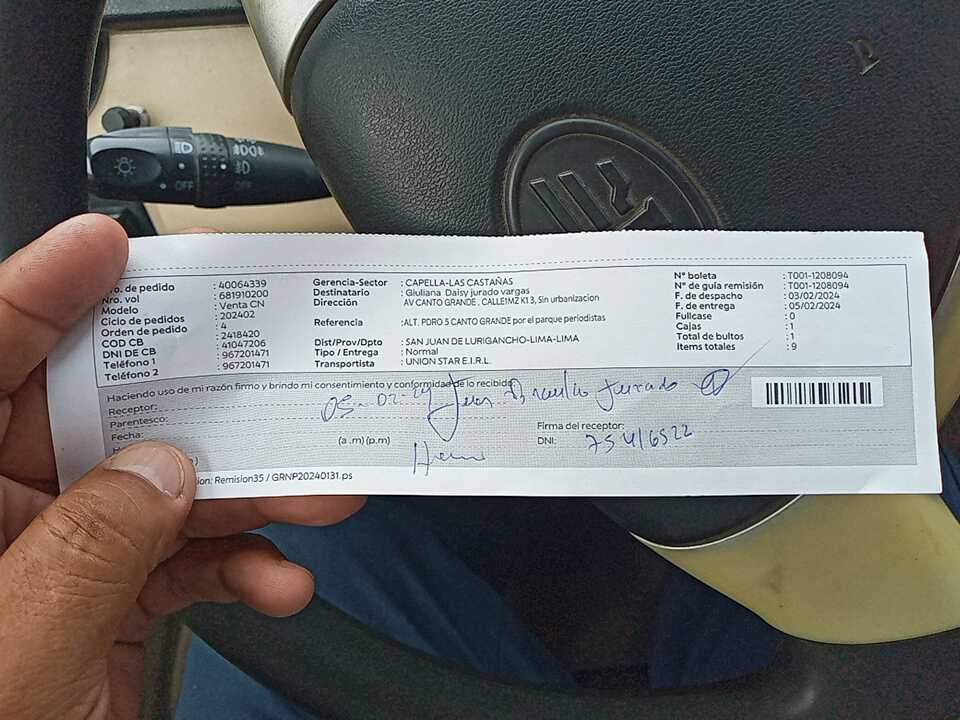 Nro. de pedido : 40064339
Nro. vol : 681910200
Modelo : Venta CN
Ciclo de pedidos : 202402
Orden de pedido : 4
COD CB : 2418420
DNI DE CB : 41047206
Teléfono 1 : 967201471
Teléfono 2 : 967201471
Gerencia-Sector : CAPELLA-LAS CASTAÑAS
Destinatario : Giuliana Daisy jurado vargas
Dirección AV CANTO GRANDE , CALLE1MZ K1 3, Sin urbanizacion
Referencia :ALT. PDRO 5 CANTO GRANDE por el parque periodistas
Dist/Prov/Dpto : SAN JUAN DE LURIGANCHO-LIMA-LIMA
Tipo / Entrega : Normal
Transportista : UNION STAR E.I.R.L.
N° boleta : T001-1208094
N° de guía remisión : T001-1208094
F. de despacho : 03/02/2024
F. de entrega : 05/02/2024
Fullcase : 0
Cajas : 1
Total de bultos : 1
Items totales : 9
Haciendo uso de mi razón firmo y brindo mi consentimiento y conformidad de lo recibido
Receptor:
Parentesco:
Fecha:
05-02-24 Braulio Jurado
(a .m) (p.m)
Firma del receptor:
DNI: 75416522
Remision35 / GRNP20240131.ps
OFF
OFF